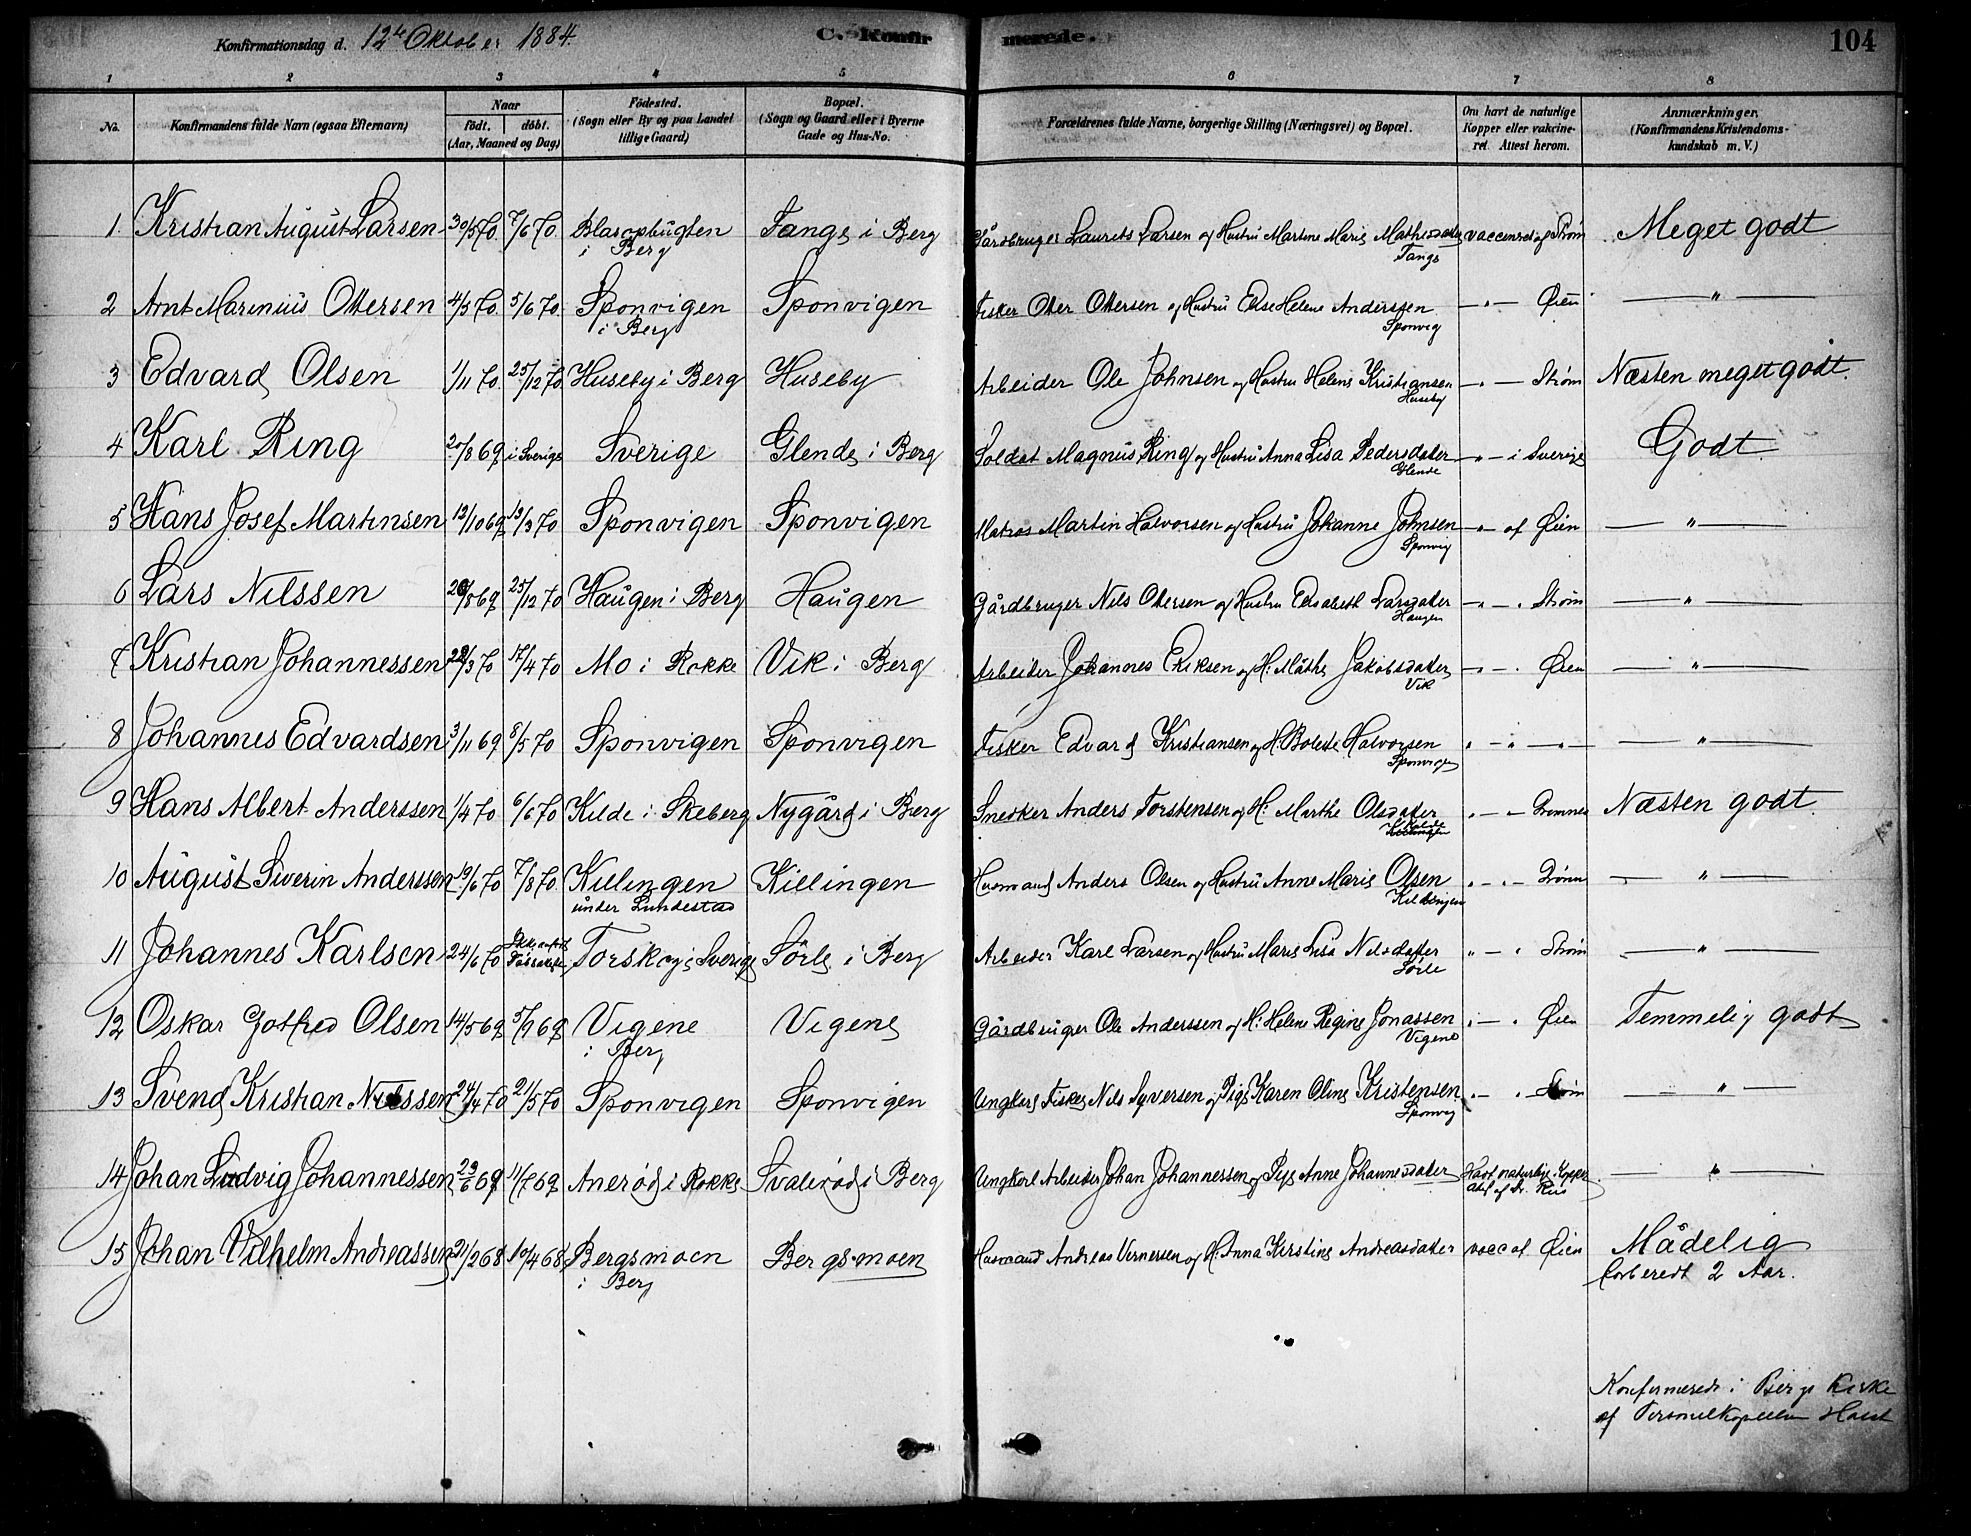 Konfirmationsdag d. 12te Oktober 1884. C. Konfirmerede. 104
1 2 3 4 5 6 7 8
No. Konfirmandens fulde Navn (ogsaa Efternavn) Naar født. døbt. (Aar, Maaned og Dag) Fødested. (Sogn eller By og paa Landet tillige Gaard) Bopæl. (Sogn og Gaard eller i Byerne Gade og Hus-No. Forældrenes fulde Navne, borgerlige Stilling (Næringsvei) og Bopæl. Om havt de naturlige Kopper eller vakcineret. Attest herom. Anmærkninger. (Konfirmandens Kristendomskundskab m. V.)
1. Kristian August Larsen 30/5 70. 7/6 70. i Berg Tange i Berg Gårdbruger Laurits Larsen og Hustru Martine Marie Mathisdatter Tange vaccineret af Strøm Meget godt
2 Arnt Marinius Ottersen 4/5 70. 5/6 70. Sponvigen i Berg Sponvigen Fisker Otter Ottersen og Hustru Else Helene Anderssen Sponvig — " — Øien — " —
3 Edvard Olsen 1/11 70. 25/12 70 Huseby i Berg Huseby Arbeider Ole Johnsen og Hustru Helene Kristiansen Huseby — " — Strøm Næsten meget godt.
4 Karl Ring 20/8 69 i Sverige Sverige Glende i Berg Soldat Magnus Ring og Hustru Anna Lisa Pedersdatter Glende — " — i Sverige Godt
5 Hans Josef Martinsen 12/10 69 13/3 70 Sponvigen Sponvigen Matros Martin Halvorsen og Hustru Johanne Johnsen Sponvig — " — af Øien — " —
6 Lars Nilssen 20/8 69 25/12 70 Haugen i Berg Haugen Gårdbruger Nils Ottersen og Hustru Elisabeth Larsdatter Haugen — " — " Strøm — " —
7 Kristian Johannessen 28/3 70 17/4 70 Mo i Rokke Vik i Berg Arbeider Johannes Eriksen og H: Mathe Jakobsdatter Vik — " — " Øien — " —
8 Johannes Edvardsen 3/11 69 8/5 70 Sponvigen Sponvigen Fisker Edvard Kristiansen og H: Bolette Halvorsen Sponvigen " — " — " — — " —
9 Hans Albert Anderssen 1/4 70 6/6 70 Kilde i Skeberg Nygård i Berg Snedker Anders Torstensen og H: Marthe Olsdatter " — " — Næsten godt.
10 August Siverin Anderssen 19/6 70 7/8 70. Killingen under Lundestad Killingen Husmand Anders Olsen og Hustru Anne Marie Olsen Killingen " — " — — " —
11 Johannes Karlsen 24/6 70 Torskog i Sverige Sørle i Berg Arbeider Karl Larsen og Hustru Marie Lisa Nilsdatter Sørle " — " Strøm — " —
12 Oskar Gotfred Olsen 14/5 69 5/9 69 Vigene i Berg Vigene Gårdbruger Ole Anderssen og H: Helene Regine Jonassen Vigene " — " Øien Temmelig godt
13 Svend Kristian Nilssen 24/4 70 21/5 70 Sponvigen Sponvigen Ungkarl Fisker Nils Syversen og Pige Karen Oline Kristensen Sponvig " — " — Strøm — " —
14 Johan Ludvig Johannessen 23/6 69 11/7 69 Anerød i Rokke Svalerød i Berg Ungkarl Arbeider Johan Johannessen og Pige Anne Johannesdatter Havt naturlige Kopper — " —
15 Johan Vilhelm Andreassen 21/2 68 10/4 68 Bergsmoen i Berg Bergsmoen Husmand Andreas Vernersen og H: Anna Kirstine Andreasdatter vacc af Øien Mådelig
forberedt 2 Aar.
Konfirmerede i Bergs Kirke
af Personelkapellan